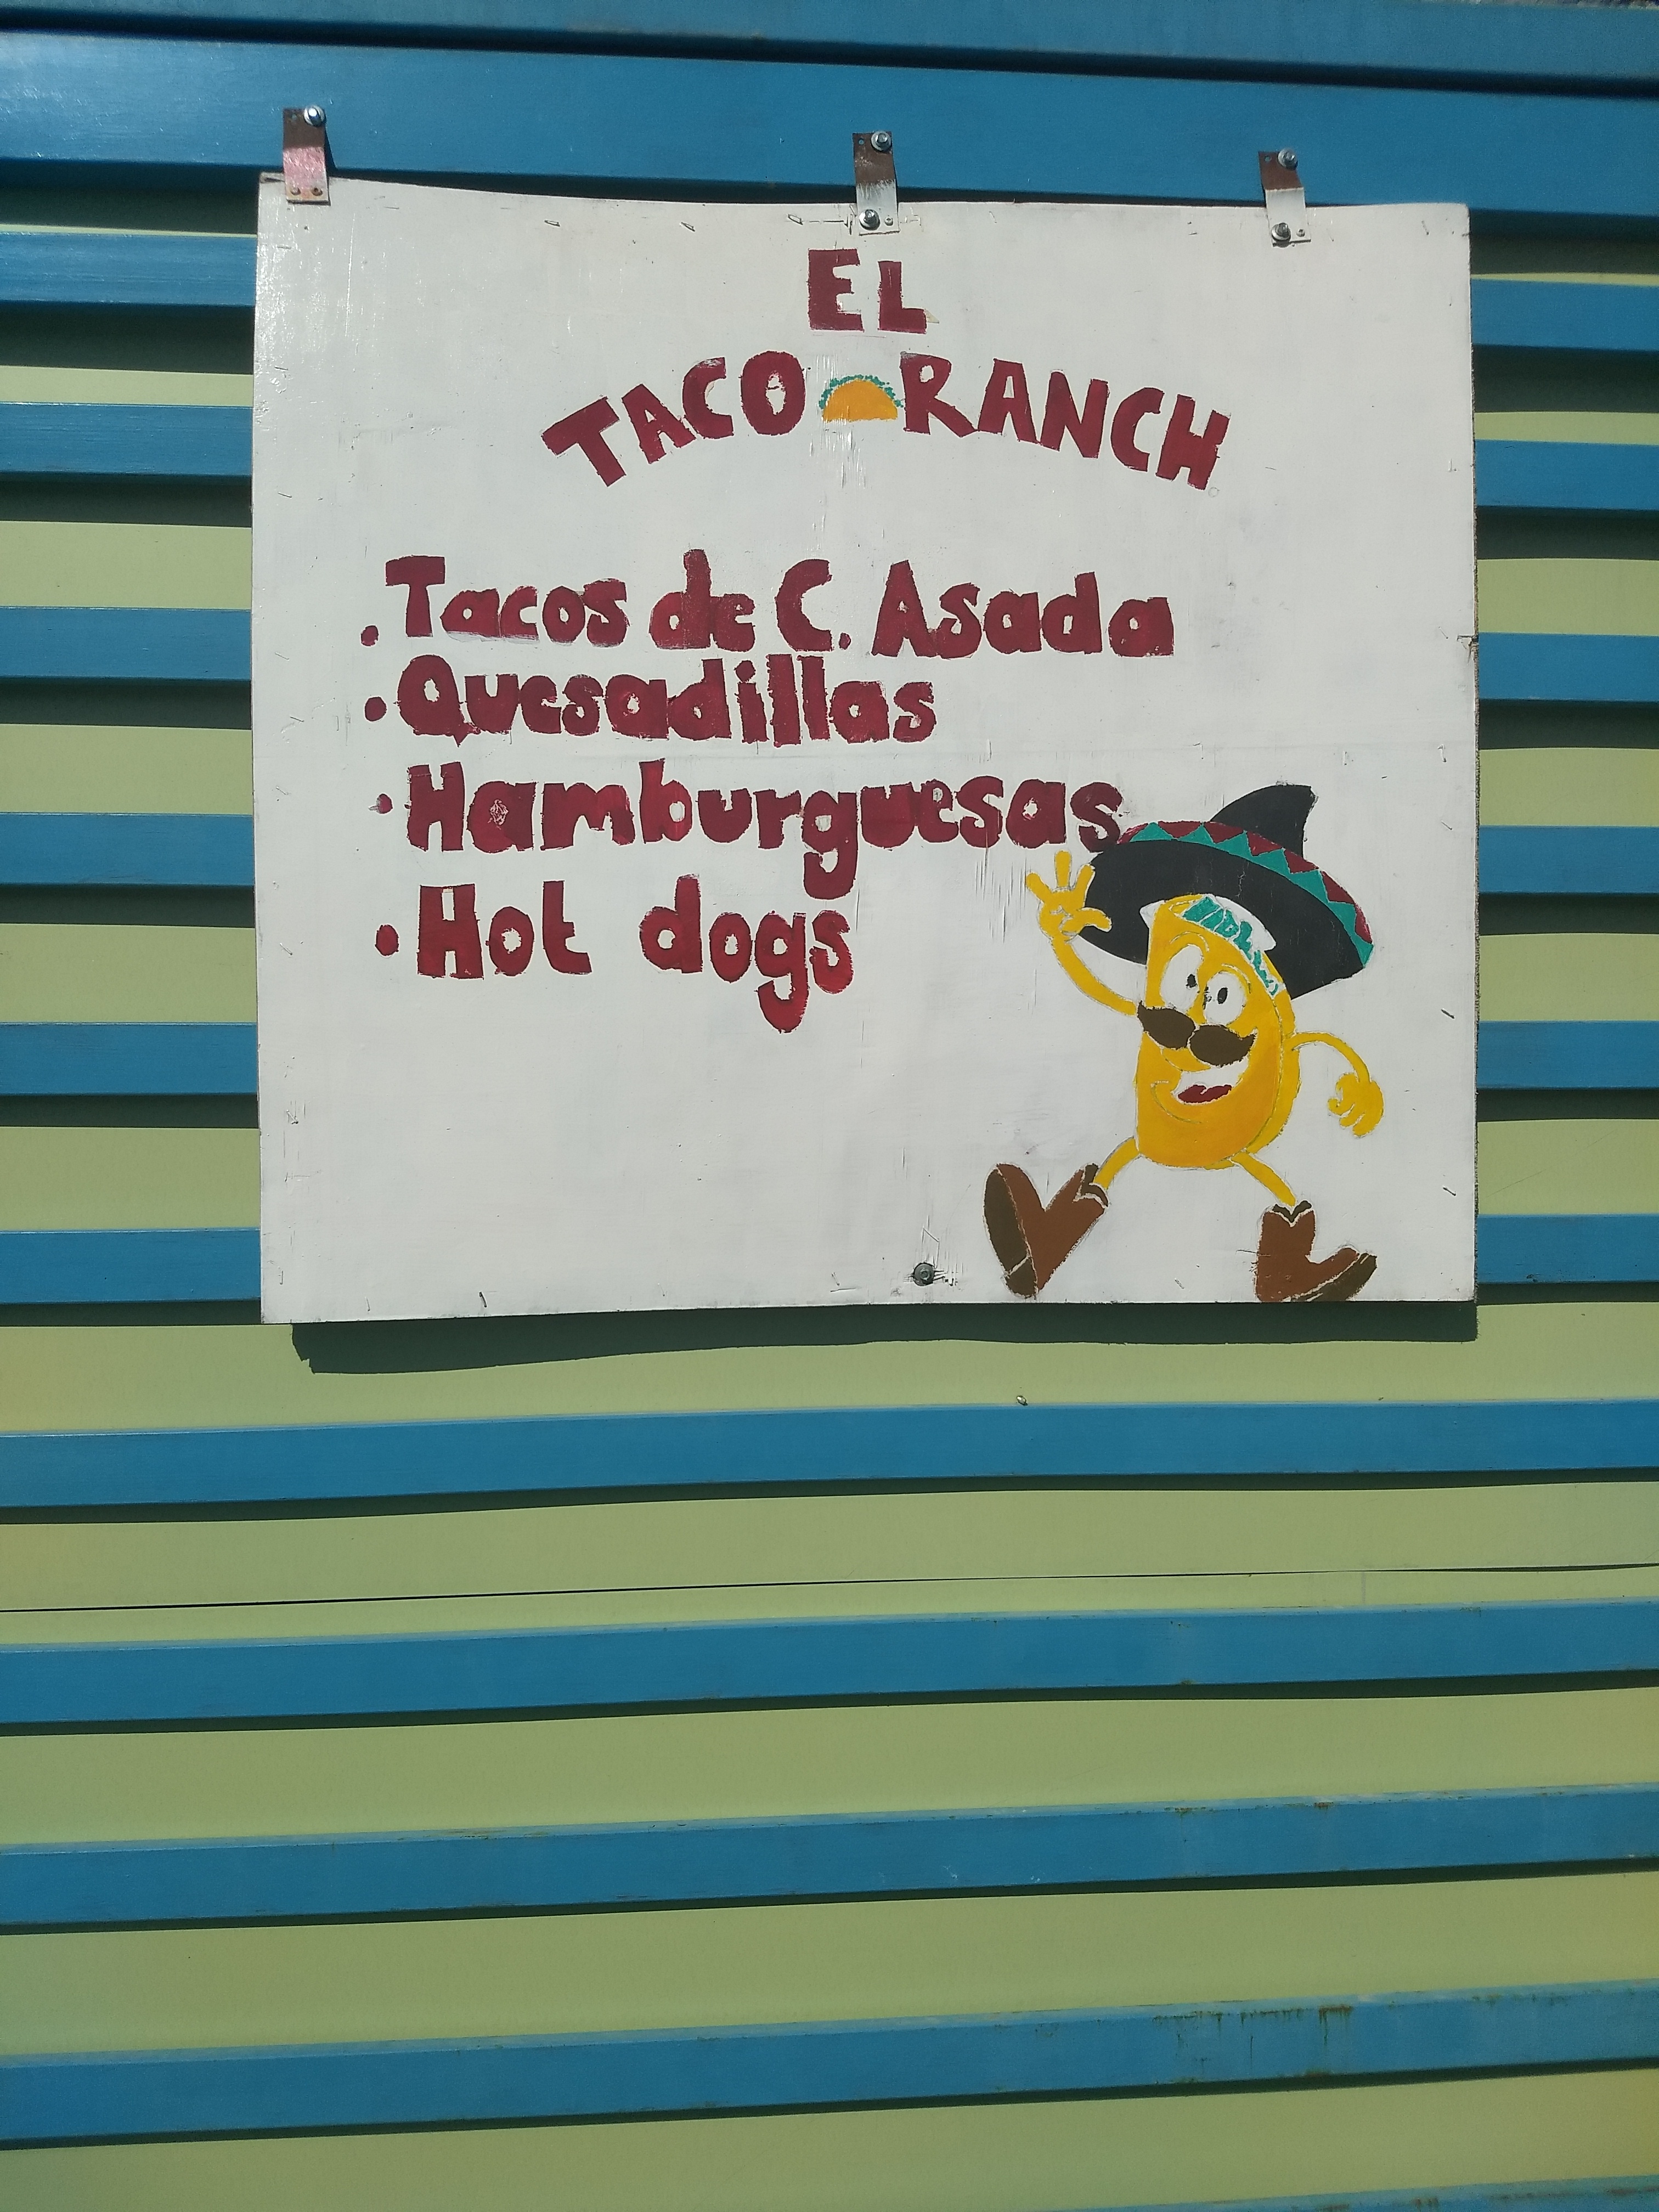 EL
TACO RANCH
. Tacos de C. Asada
• Quesadillas
• Hamburguesas
• Hot dogs